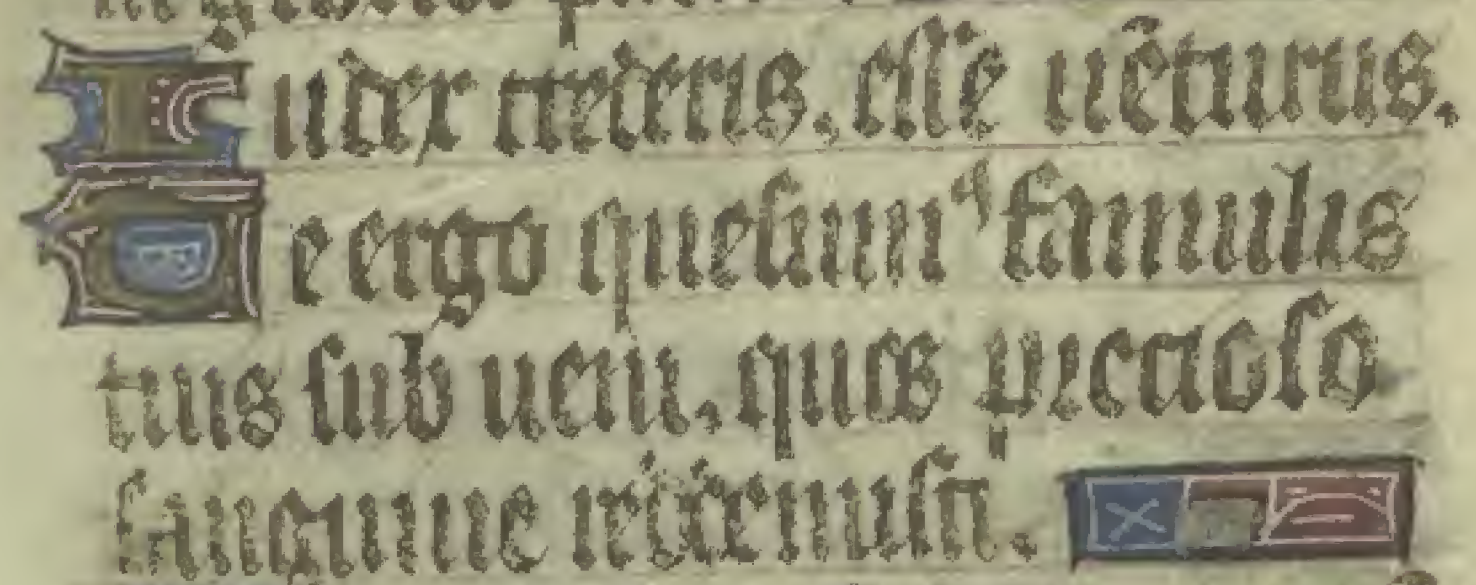 Iudex crederis. esse uēturus.
Te ergo quesumꝰ famulis
tuis sub ueni. quos precioso
sanguine redemisti.